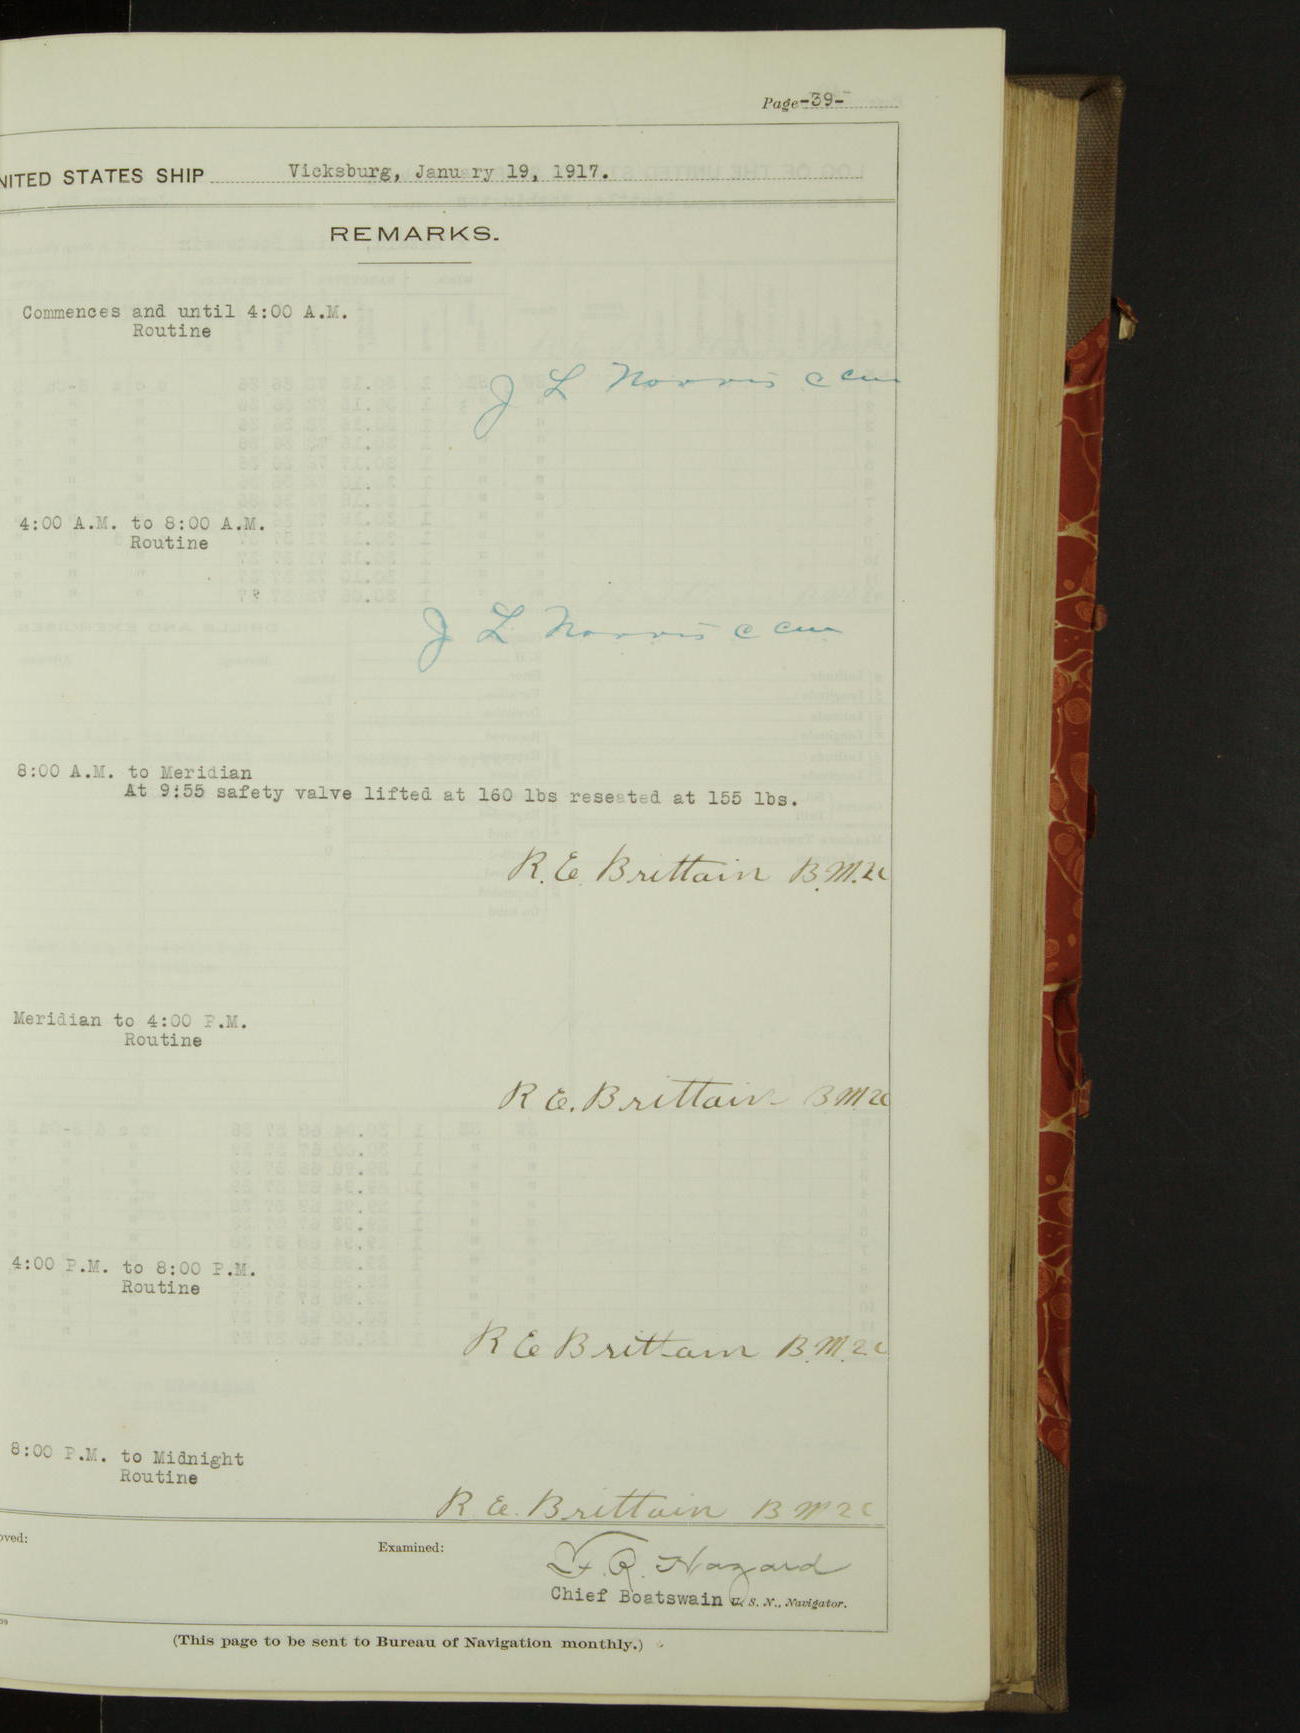 Page -39-
NITED STATES SHIP Vicksburg, January 19, 1917.
REMARKS.
Commences and until 4:00 A.M.
Routine
J L Norris C CM
4:00 A.M. to 8:00 A.M.
Routine
J L Norris C CM
8:00 A.M. to Meridian
At 9:55 safety valve lifted at 160 lbs reseated at 155 lbs.
R. E. Brittain B.M.2c
Meridian to 4:00 P.M.
Routine
R E. Brittain B M 2c
4:00 P.M. to 8:00 P.M.
Routine
R E Brittain B.M. 2 c
8:00 P.M. to Midnight
Routine
R E. Brittain B M 2 c
oved:
Examined:
F. R. Hazard
Chief Boatswain U. S. N., Navigator.
(This page to be sent to Bureau of Navigation monthly.)